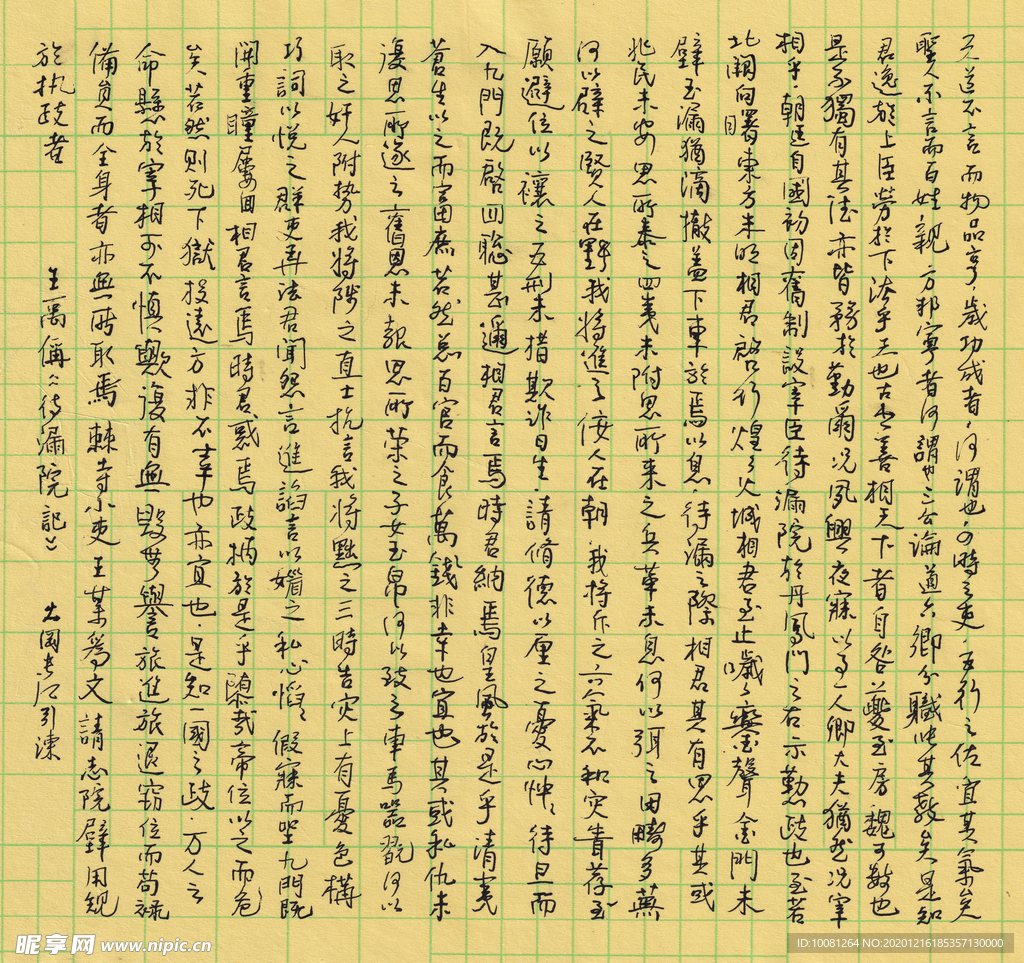 天道不言而物品亨歲功成者何謂也四時之吏五行之佐宣其氣矣
聖人不言而百姓親萬邦寧者何謂也三公論道六卿分職張其教矣是知
君逸於上臣勞於下法乎天也古之善相天下者自咎夔至房魏可數也
是不獨有其德亦皆務於勤爾况夙興夜寐以事一人卿大夫猶然况宰
相乎朝廷自國初因舊制設宰臣待漏院於丹鳳門之右示勤政也至若
北闕向曙東方未明相君啓行煌煌火城相君至止噦噦鑾聲金門未
闢玉漏猶滴撤蓋下車於焉以息待漏之際相君其有思乎其或
兆民未安思所泰之四夷未附思所來之兵革未息何以弭之田疇多蕪
何以闢之賢人在野我將進之佞人在朝我將斥之六氣不和灾眚荐至
願避位以禳之五刑未措欺詐日生請脩德以厘之憂心忡忡待旦而
入九門既啓四聰甚邇相君言焉時君納焉皇風於是乎清夷
蒼生以之而富庶若然總百官而食萬錢非幸也宜也其或私仇未
復思所逐之舊恩未報思所榮之子女玉帛何以致之車馬器翫何以
取之奸人附勢我將陟之直士抗言我將黜之三時告灾上有憂色構
巧詞以悅之群吏弄法君聞怨言進諂言以媚之私心慆慆假寐而坐九門既
開重瞳屢回相君言焉時君惑焉政柄於是乎隳哉帝位以之而危
矣若然則死下獄投遠方非不幸也亦宜也是知一國之政万人之
命懸於宰相可不慎歟復有無毀無譽旅進旅退竊位而苟禄
備員而全身者亦無所取焉棘寺小吏王某爲文請志院壁用規
於執政者 王禹偁《待漏院記》
昵享网 www.nipic.cn
ID:10081264 NO:20201216185357130000